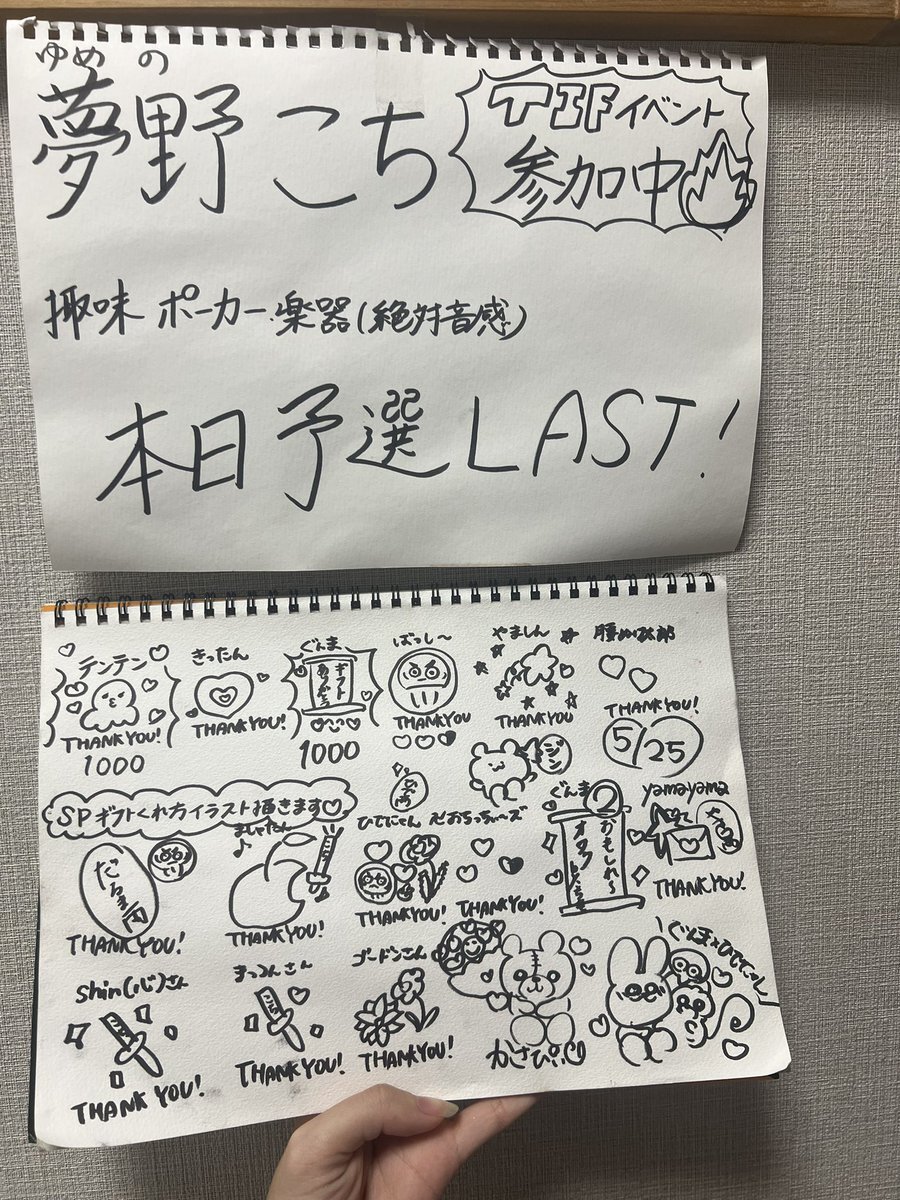 ゆめ の
夢野こち
TIFイベント
参加中
趣味 ポーカー・楽器(絶対音感)
本日予選LAST!
テンテン
THANKYOU!
1000
きったん
THANKYOU!
ぐんま
ギフト
ありがとう
1000
ばっし〜
THANKYOU
やましん
THANKYOU
THANKYOU!
5/25
SPギフトくれた方イラスト描きます♡
だるま
THANKYOU!
THANKYOU!
ひでにゃん
THANKYOU!
THANKYOU!
ぐんま
おもしれ〜
yamayama
THANKYOU!
shin(心)さん
THANK YOU!
まっつんさん
THANKYOU!
ゴードンさん
THANKYOU!
かさぴ
ぐんま&ひでにゃん